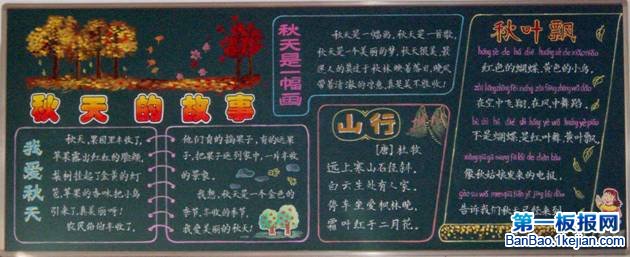 秋天的故事
我爱秋天
秋天,果园里丰收了,
苹果露出红红的脸颊,
梨树挂起了金黄的灯
笼,苹果的香味把小鸟
引来了,真美丽呀!
农民伯伯丰收了,
他们有的摘果子,有的运果
子,把果子运到家中,一片丰收
的景象。
我想,秋天是一个金色的
季节,丰收的季节,
我爱美丽的秋天!
秋天是一幅画
秋天是一幅画,秋天是一首歌,
秋天是一个美丽的梦,秋天很美,最
迷人的莫过于秋林,映着落日,晚风
带着清凉的冷意,真是美不胜收!
山行
[唐]杜牧
远上寒山石径斜,
白云生处有人家,
停车坐爱枫林晚,
霜叶红于二月花。
秋叶飘
红色的蝴蝶,黄色的小鸟,
在空中飞翔,在风中舞蹈,
不是蝴蝶,是红叶舞,黄叶飘,
像秋姑娘发来的电报,
告诉我们秋天已经来到
第一板报网
BanBao.1kejian.com